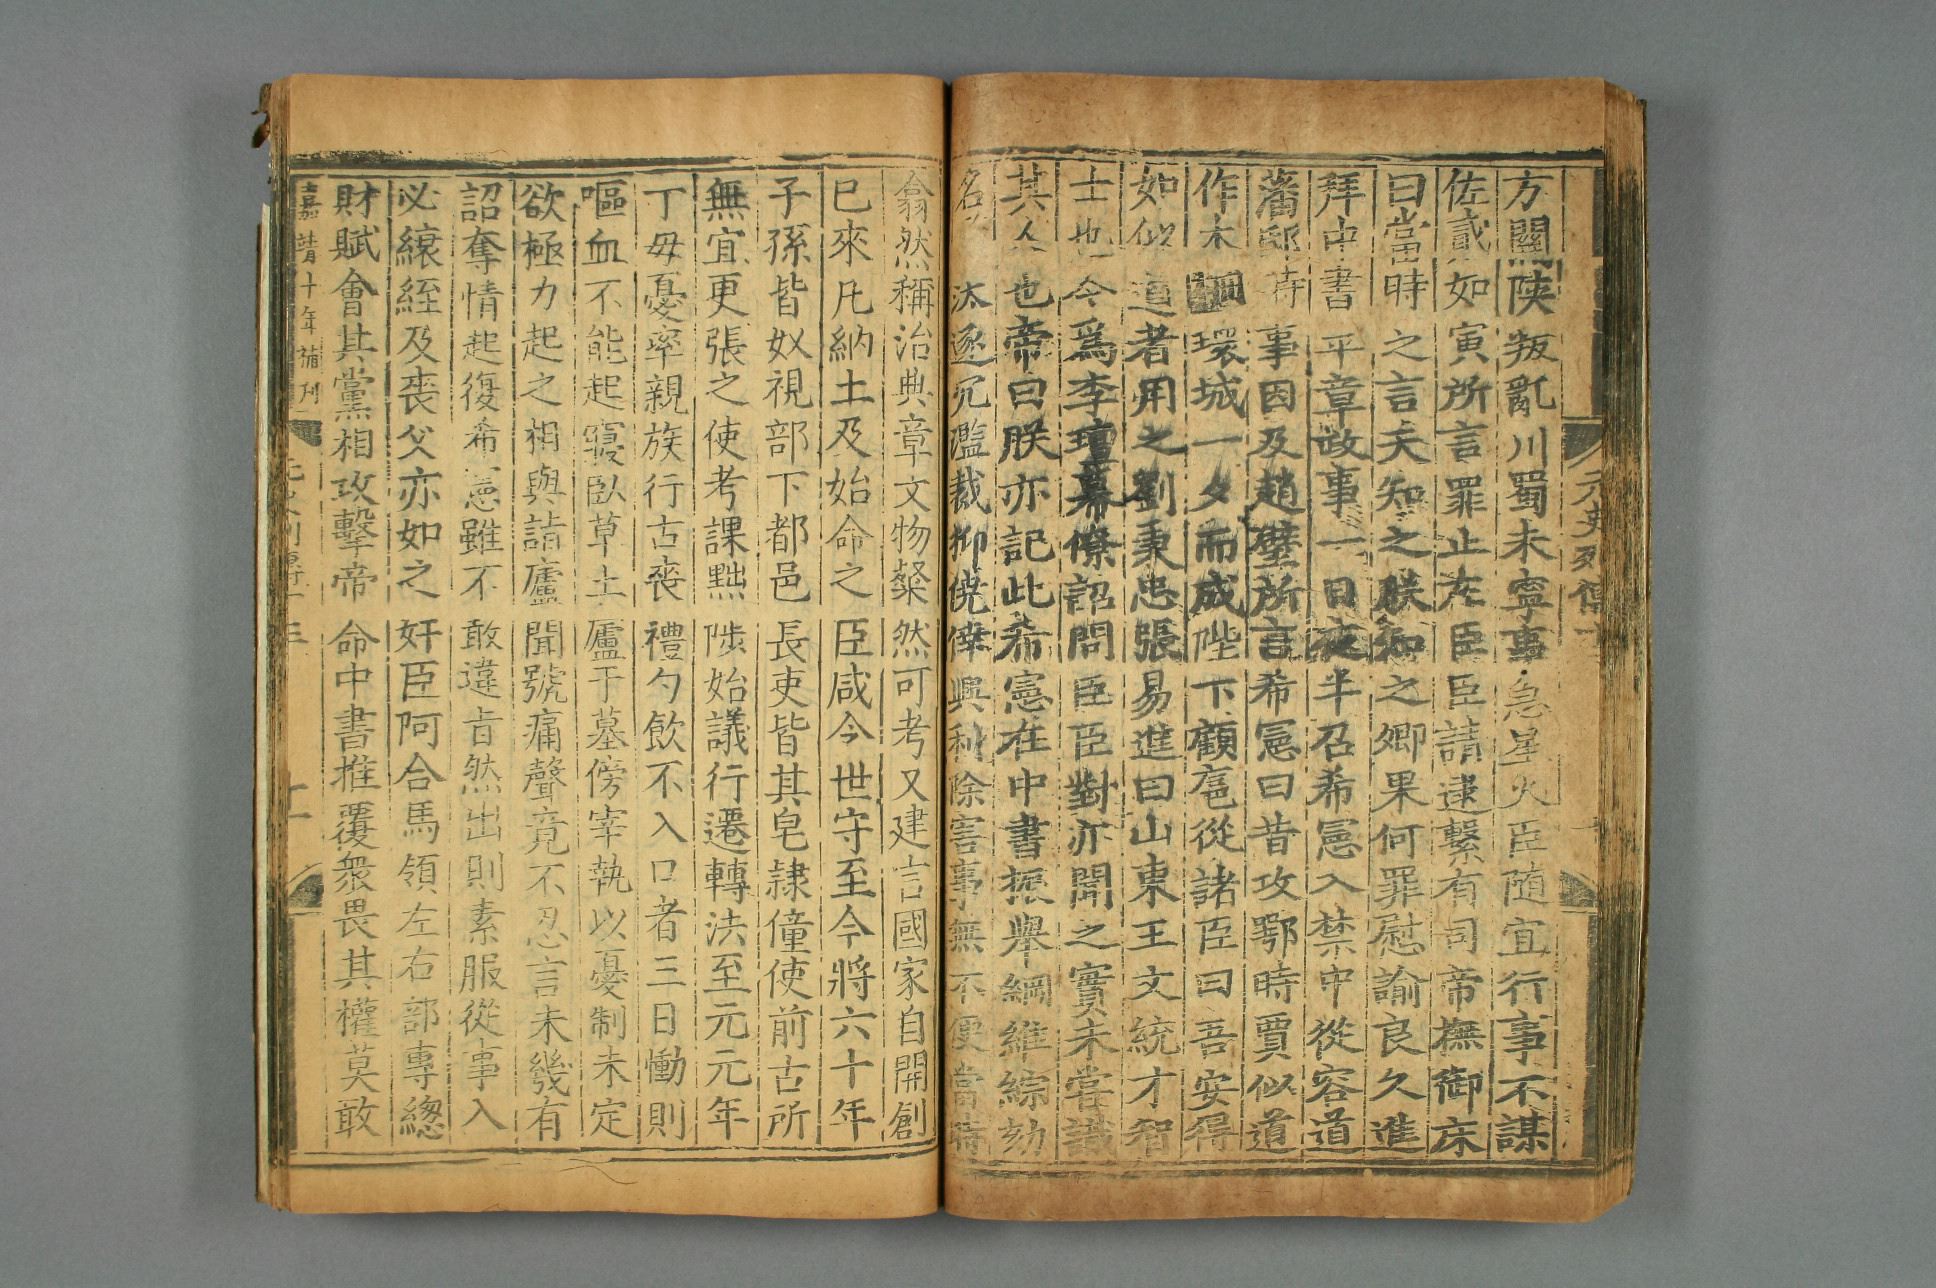 方關陝叛亂川蜀未寧事急星火臣随宜行事不謀
佐貳如寅所言罪止在臣臣請逮繫有司帝撫御床
曰當時之言天知之朕知之卿果何罪慰諭良久進
拜中書平章政事一日夜半召希憲入禁中從容道
藩邸時事因及趙璧所言希憲曰昔攻鄂時賈似道
作木柵環城一夕而成陛下顧扈從諸臣曰吾安得
如似道者用之劉秉忠張易進曰山東王文統才智
士也今爲李璮幕僚詔問臣臣對亦聞之實未嘗識
其人也帝曰朕亦記此希憲在中書振舉綱維綜劾
名 汰逐冗濫裁抑僥倖興利除害事無不便當時
翕然稱治典章文物粲然可考又建言國家自開創
已來凡納土及始命之臣咸今世守至今將六十年
子孫皆奴視部下都邑長吏皆其皂隷僮使前古所
無宜更張之使考課黜陟始議行遷轉法至元元年
丁毋憂率親族行古喪禮勺飲不入口者三日慟則
嘔血不能起寢臥草土廬于墓傍宰執以憂制未定
欲極力起之相與詣廬聞號痛聲竟不忍言未幾有
詔奪情起復希憲雖不敢違旨然出則素服從事入
必縗絰及喪父亦如之奸臣阿合馬領左右部專緫
財賦會其黨相攻擊帝命中書推覆衆畏其權莫敢
嘉靖十年補刊
元史列傳十三
十一